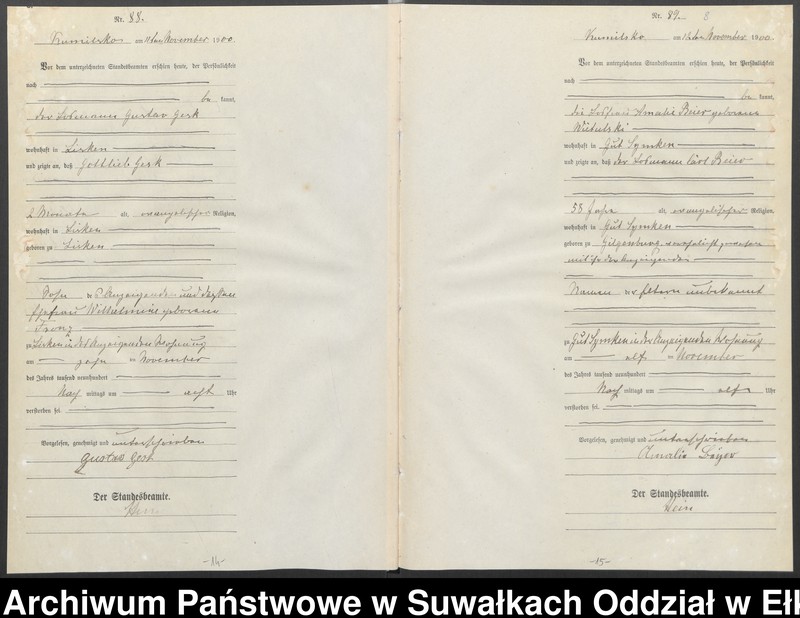 Nr. 88.
am 11ten November 1900.
Vor dem unterzeichneten Standesbeamten erschien heute, der Persönlichkeit
nach
be kannt,
der Losmann Gustav Gerk
wohnhaft in Lisken
und zeigte an, daß Gottlieb Gerk
2 Monate alt, evangelischer Religion,
wohnhaft in Lisken
geboren zu Lisken
Sohn des Anzeigenden und dessen
Ehefrau Wilhelmine geborene
zu Lisken in des Anzeigenden Wohnung
am zehn ten November
des Jahres tausend neunhundert
Nach mittags um acht Uhr
verstorben sei.
Vorgelesen, genehmigt und unterschrieben
Gustav Gerk
Der Standesbeamte.
Hein
-14-
Nr. 89.
Kumilsko am November 1900.
Vor dem unterzeichneten Standesbeamten erschien heute, der Persönlichkeit
nach
be kannt,
die Losfrau Amalie Beier geborene
wohnhaft in Gut Symken
und zeigte an, daß der Losmann Carl Beier
53 Jahre alt, evangelischer Religion,
wohnhaft in Gut Symken
geboren zu Gilgenburg verehelicht gewesen
mit ihr der Anzeigenden
Namen der Eltern unbekannt
zu Gut Symken in der Anzeigenden Wohnung
am elf ten November
des Jahres tausend neunhundert
Nach mittags um elf Uhr
verstorben sei.
Vorgelesen, genehmigt und unterschrieben
Amalie Beyer
Der Standesbeamte.
Hein
-15-
Archiwum Państwowe w Suwałkach Oddział w Ełk